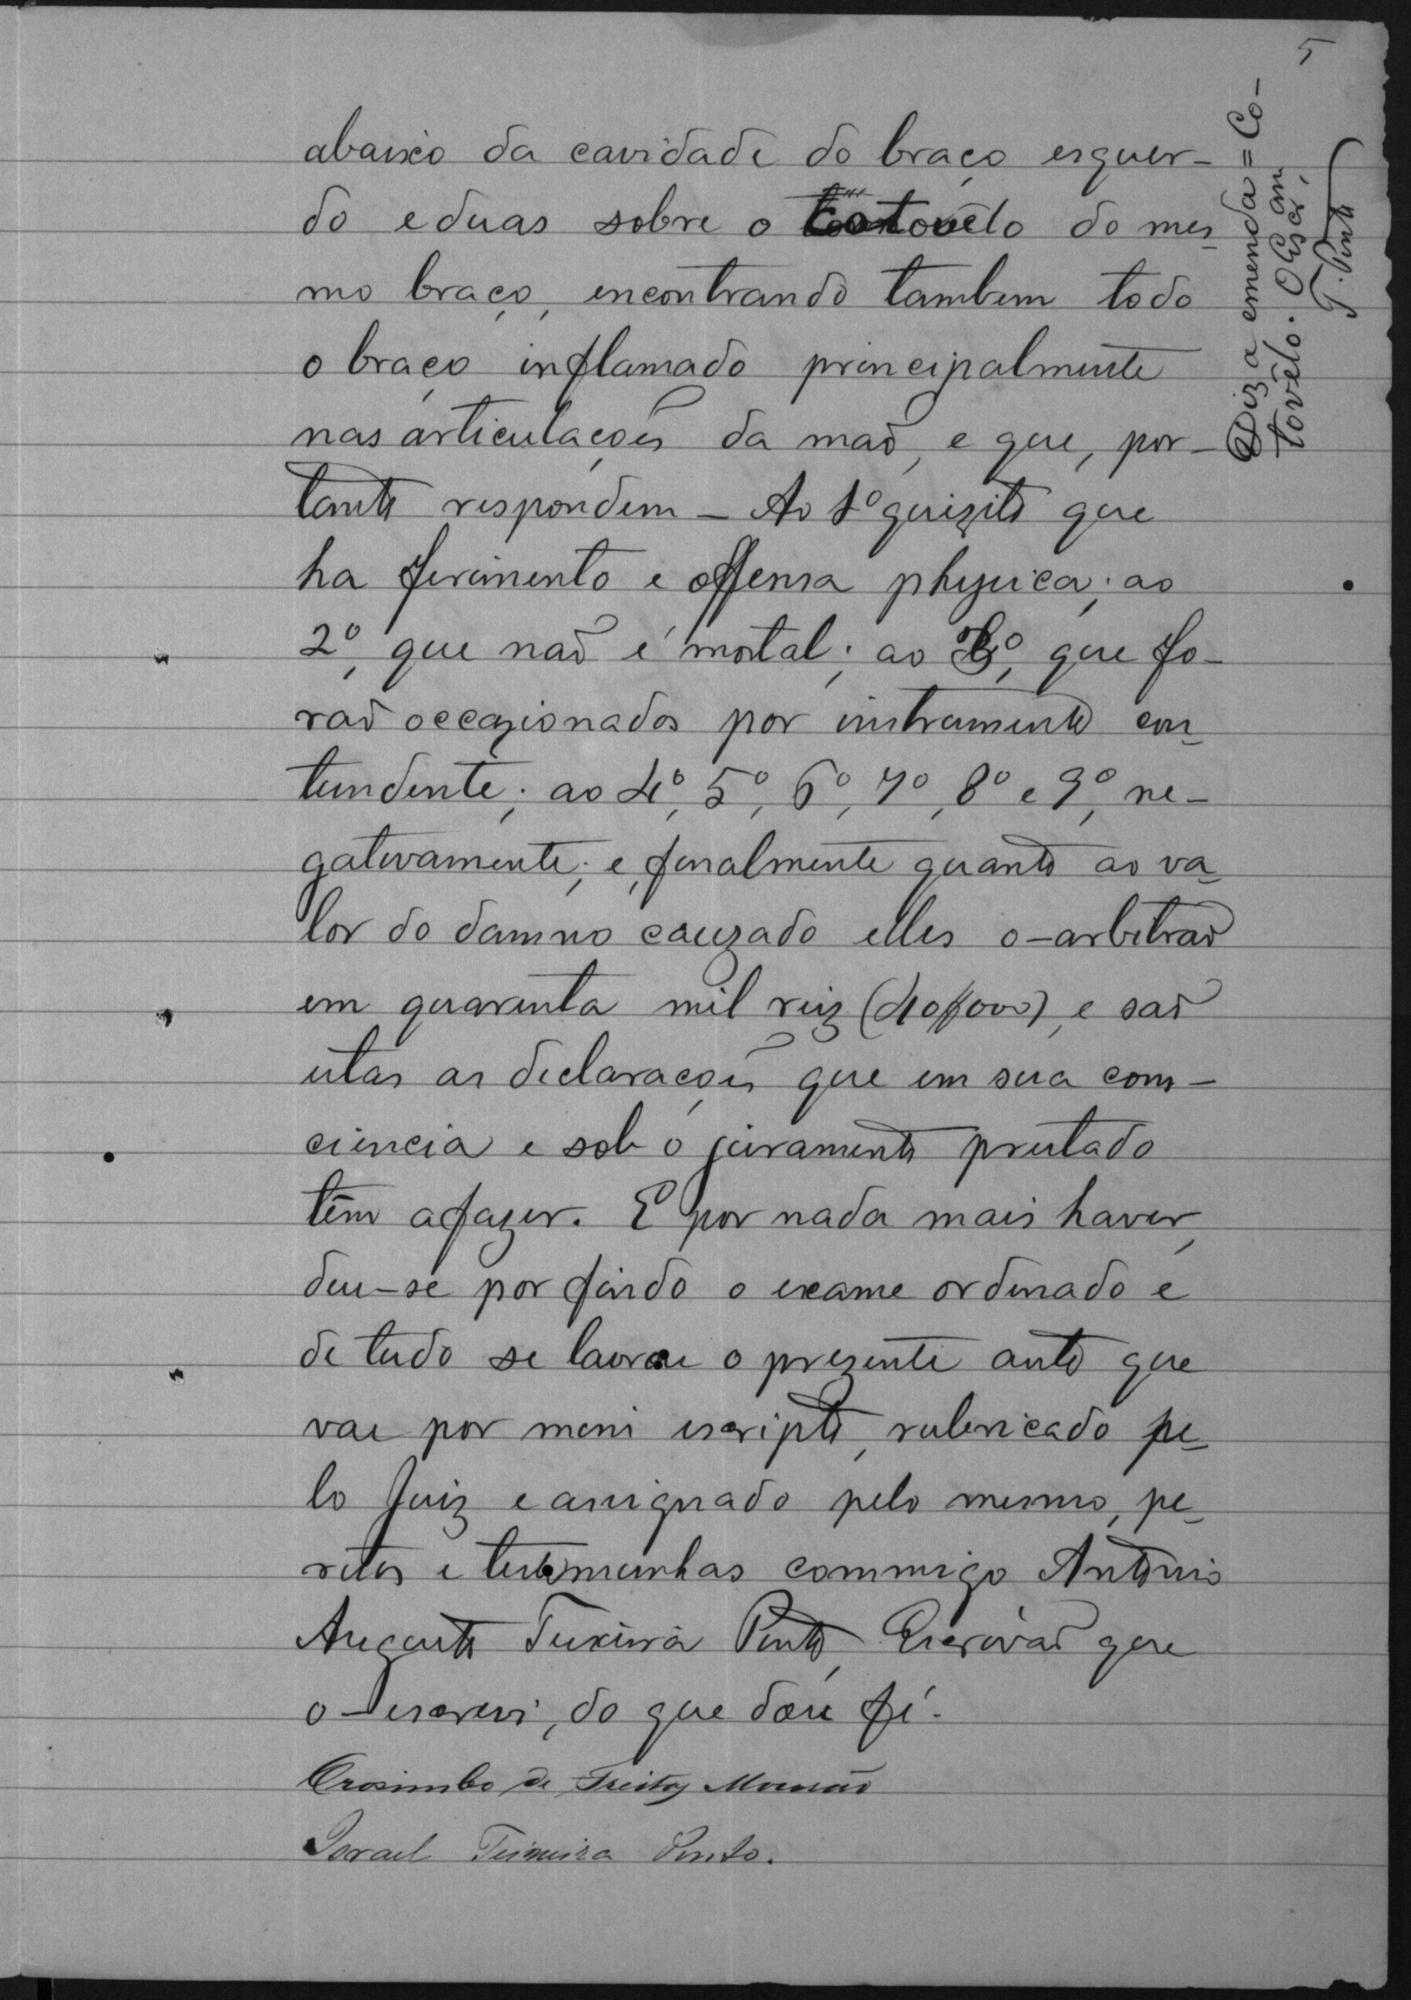 5
abaixo da cavidade do braço esquer-
do e duas sobre o Cotovêlo do mes-
mo braço, encontrando tambem todo
o braço inflamado principalmente
nas articulações da maõ, e que, por-
tanto respondem - Ao 1º quizito que
ha ferimento e offensa physica; ao
2º, que naõ é mortal; ao 3º, que fo-
raõ occazionados por instrumento con-
tundente; ao 4º, 5º, 6º, 7º, 8º e 9º, ne-
gativamente; e, finalmente quanto ao va-
lor do damno cauzado elles o-arbitraõ
em quarenta mil reiz (40$000), e saõ
estas as declarações que em sua cons-
ciencia e sob o juramento prestado
têm a fazer. E por nada mais haver,
deu-se por findo o exame ordenado e
de tudo se lavrou o prezente auto que
vae por mim escripto, rubricado pe-
lo Juiz e assignado pelo mesmo, pe-
ritos e testemunhas commigo Antonio
Augusto Teixeira Pinto, Escrivaõ que
o-escrevi, do que dou fé.
de Freitas
Israel Teixeira Pinto.
Diz a emenda = Co-
tovêlo. O Escram,
T. Pinto